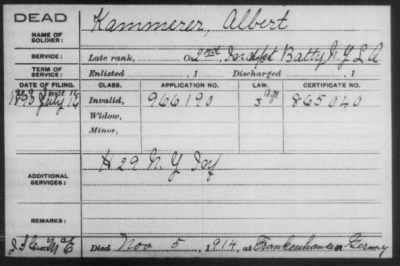 DEAD
NAME OF SOLDIER: Kammerer, Albert
SERVICE: Late rank, Co. 2nd Indpt Batty N. Y. L. A
TERM OF SERVICE: Enlisted , 1 Discharged , 1
DATE OF FILING. CLASS. APPLICATION NO. LAW. CERTIFICATE NO.
1893 July Invalid, 966190 865040
Widow,
Minor,
ADDITIONAL SERVICES: H 29 N. Y. Inf
REMARKS:
Died Nov 5, 1914, at Frankenhausen Germany